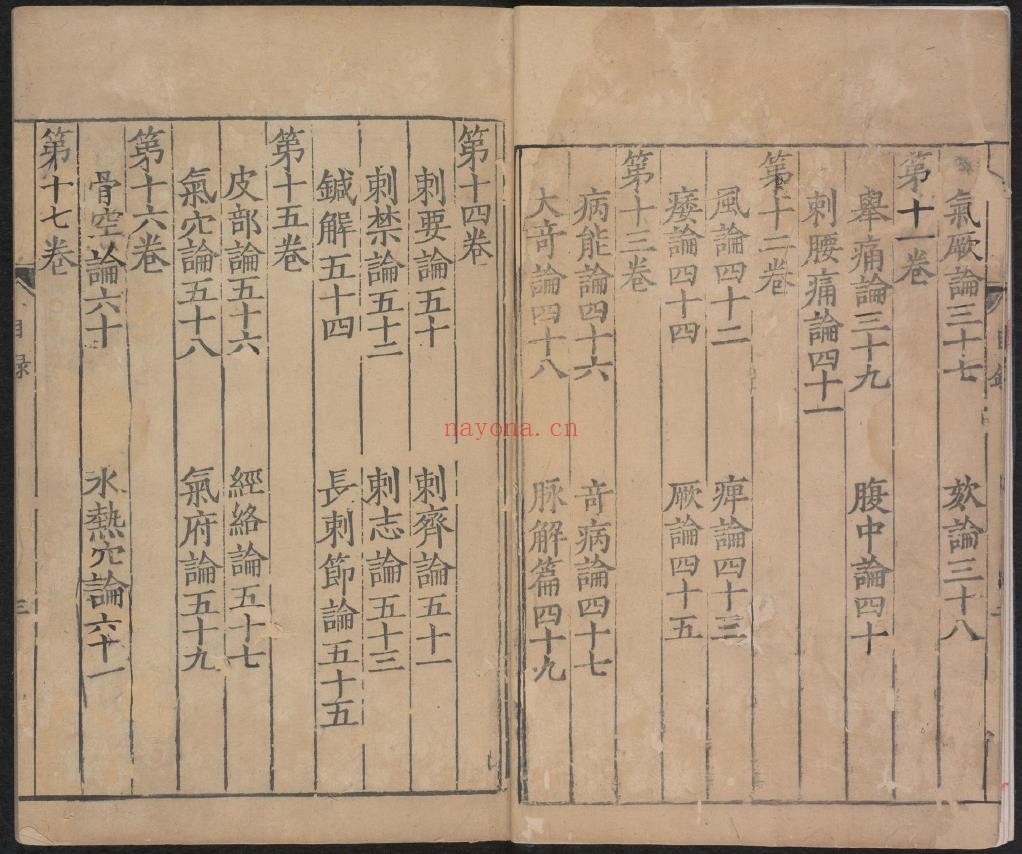 氣厥論三十七　欬論三十八
第十一卷
舉痛論三十九　腹中論四十
刺腰痛論四十一
第十二卷
風論四十二　痺論四十三
痿論四十四　厥論四十五
第十三卷
病能論四十六　竒病論四十七
大竒論四十八　脉解篇四十九
第十四卷
刺要論五十　刺齊論五十一
刺禁論五十二　刺志論五十三
鍼解五十四　長刺節論五十五
第十五卷
皮部論五十六　經絡論五十七
氣穴論五十八　氣府論五十九
第十六卷
骨空論六十　水熱穴論六十一
第十七卷
目録
三
nayona.cn